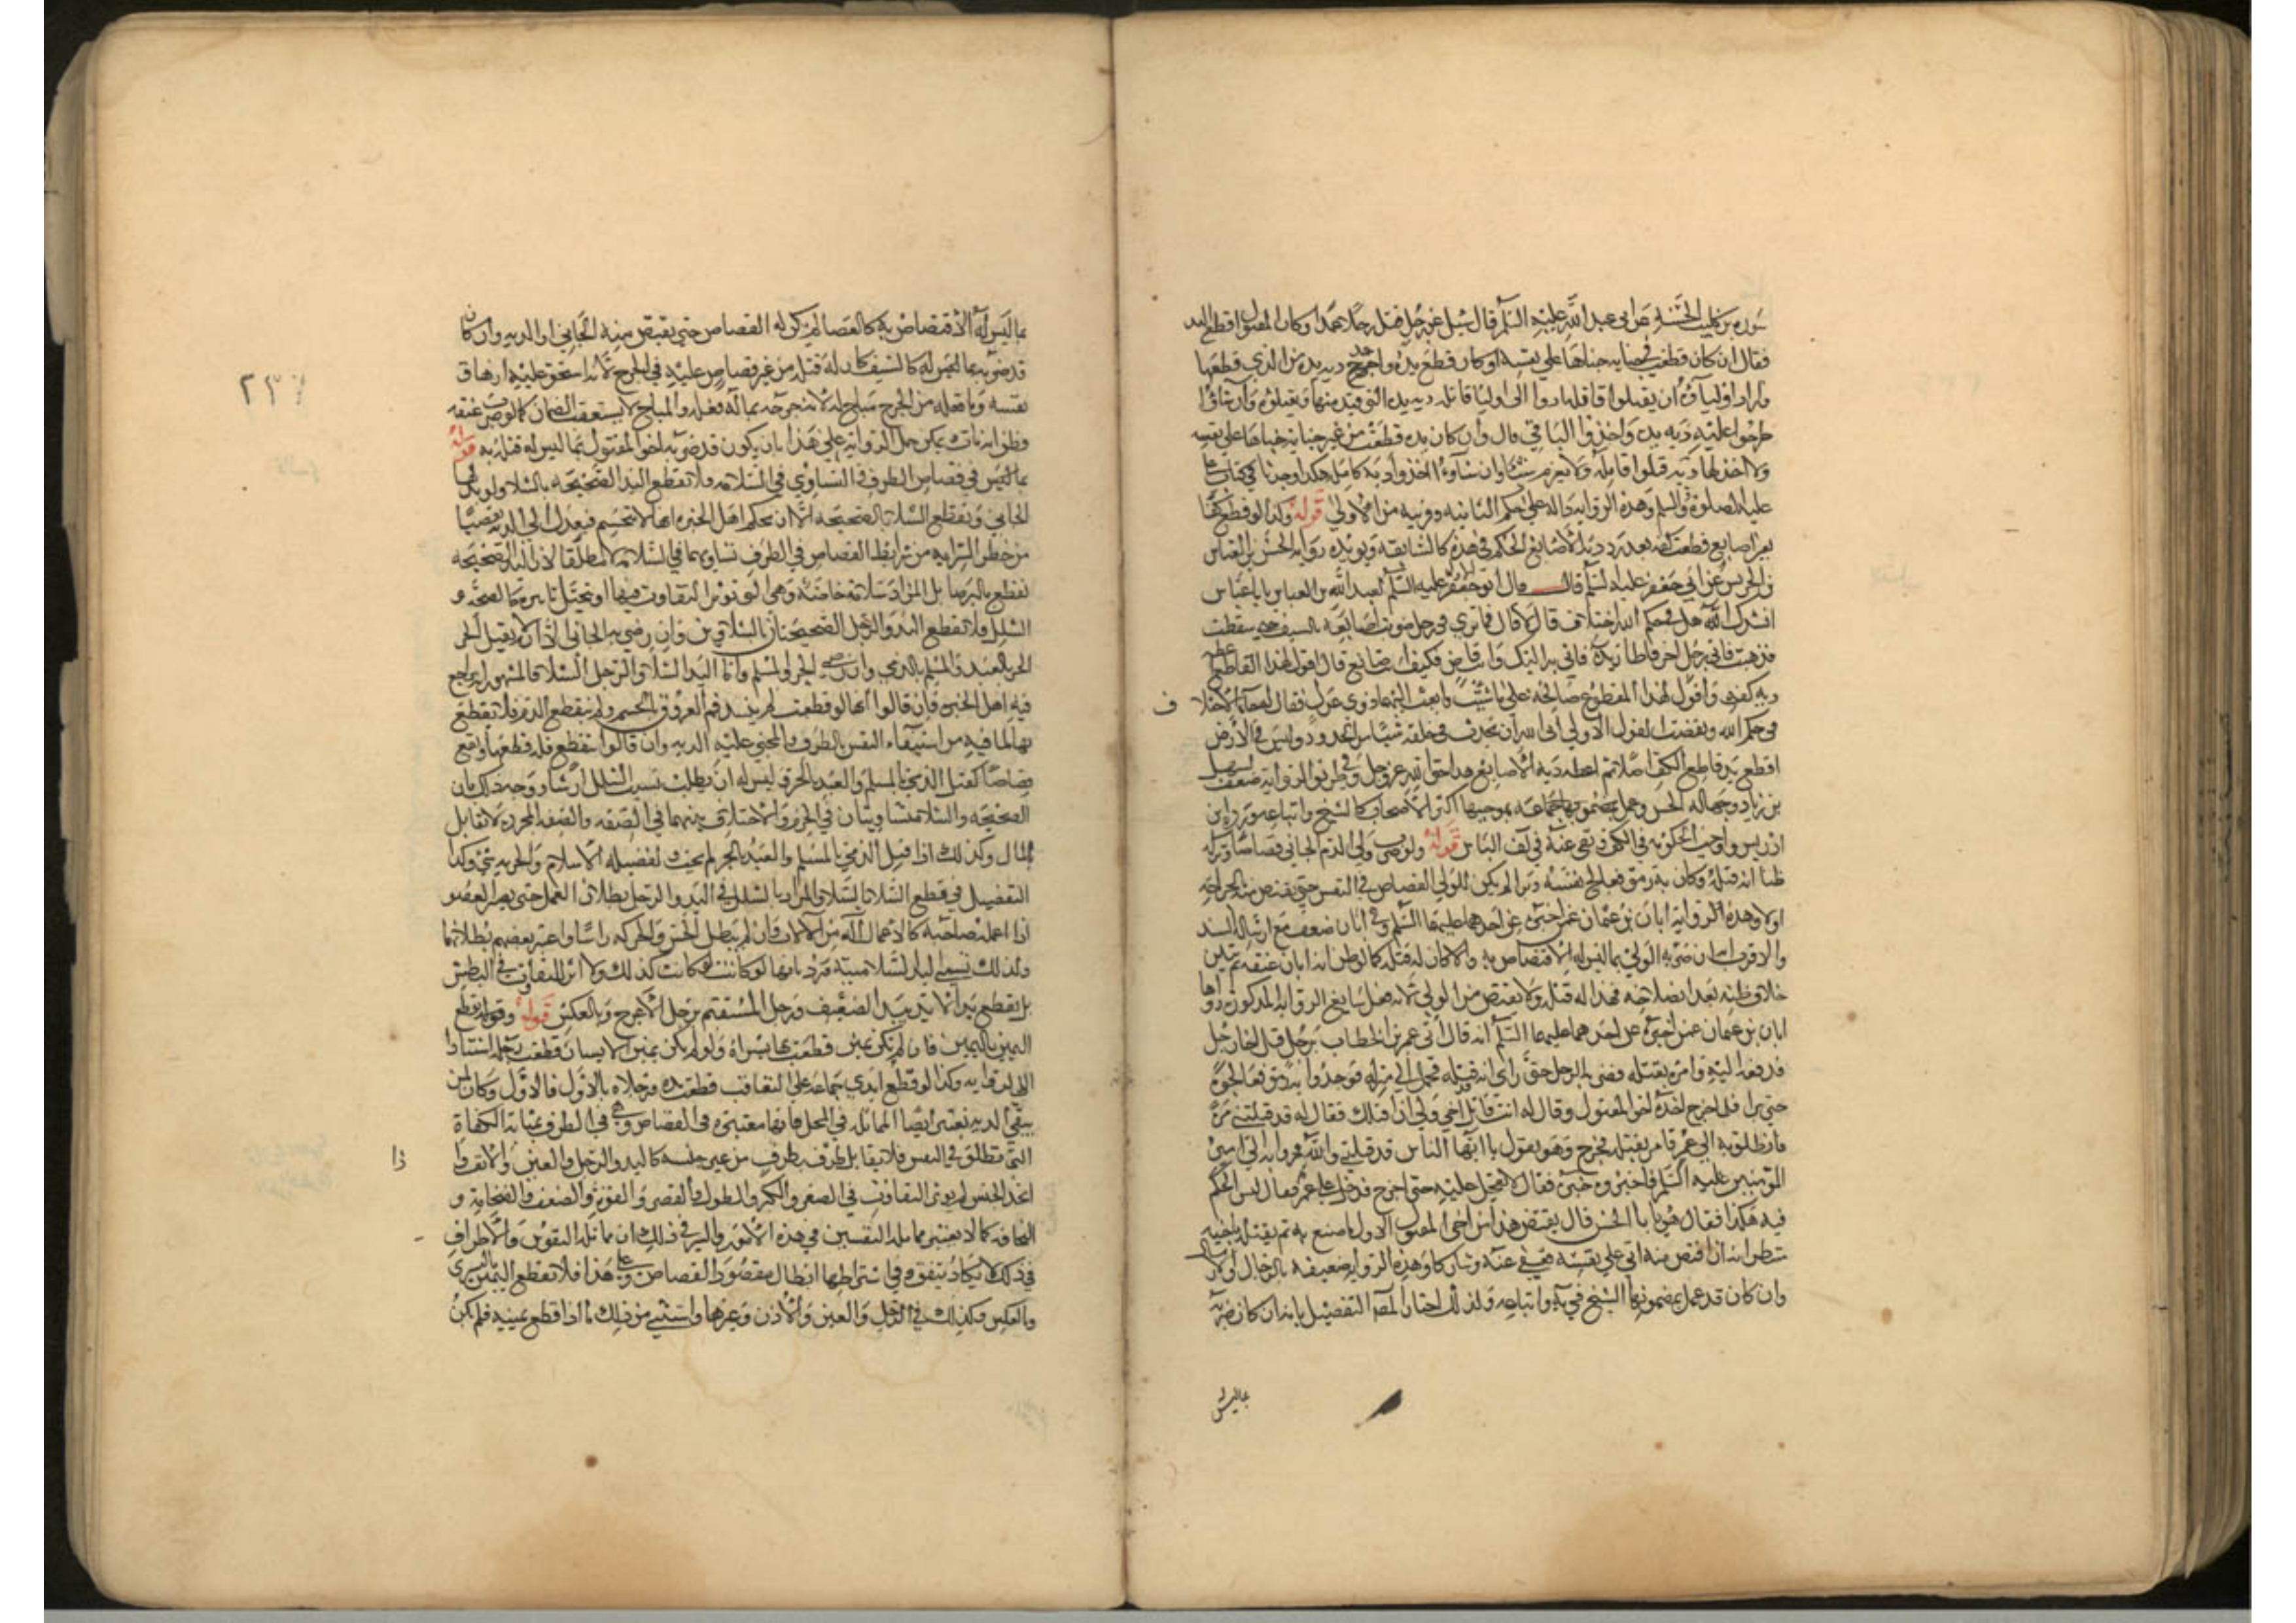 سورة بن كليب الحسنه عن ابي عبد الله عليه السلم قال سئل عن رجل قتل رجلا عمدا وكان المقتول اقطع اليد
فقال ان كان قطعت في جنايه جناها على نفسه او كان قطع يده واخذ ديه يده من الذي قطعها
واراد اولياؤه ان يقتلوا قاتله ادوا الى اوليا قاتله ديه يده التي قيد منها ويقتلوه وان شاؤا
طرحوا عليه ديه يده واخذوا الباقي قال وان كان يده قطعت من غير جنايه جناها على نفسه
ولا اخذ لها ديه قتلوا قاتله ولا يغرم شيئا وان شاؤا اخذوا ديه كامله هكذا وجدنا في كتاب علي
عليه الصلوة والسلم وهذه الروايه داله على حكم الثانيه وقريبه من الاولى قوله وكذا لو قطع كفا
بغير اصابع قطعت كفه بعد رد ديه الاصابع الحكم في هذه كالسابقه ويؤيده روايه الحسن بن العباس
بن الحريش عن ابي جعفر عليه السلم قال قال ابو جعفر عليه السلم لعبد الله بن العباس يا بن عباس
انشدك الله هل في حكم الله اختلاف قال لا قال فما ترى في رجل ضربت اصابعه بالسيف حتى سقطت
فذهبت فاتى رجل اخر فاطار يده فاتي به اليك وانت قاض فكيف انت صانع قال اقول لهذا القاطع اعطه
ديه كفه واقول لهذا المقطوع صالحه على ما شئت وابعث اليهما ذوي عدل فقال له جاء الاختلا ف
في حكم الله ونقضت القول الاول ابى الله ان يحدث في خلقه شيئا من الحدود وليس في الارض
اقطع يد قاطع الكف اصلا ثم اعطه ديه الاصابع هذا حق الله عز وجل وفي طريق الروايه ضعف لسهل
بن زياد وجهاله الحسن وعمل بمضمونها جماعه بموجبها اكثر الاصحاب كالشيخ واتباعه ورده ابن
ادريس واوجب الحكومه في الكف قوله ولو ضرب ولي الدم الجاني قصاصا وتركه
ظنا انه قتله وكان به رمق فعالج نفسه وبرا لم يكن للولي القصاص في النفس حتى يقتص منه بالجراحه
اولا وهذه الروايه ابان بن عثمان عمن اخبره عن احدهما عليهما السلم وفي ابان ضعف مع ارساله السند
والاقرب انه ان ضربه الولي بما ليس له الاقتصاص به والا كان له قتله كما لو ظن انه ابان عنقه ثم تبين
خلاف ظنه بعد انصلاحه فهذا له قتله ولا يقتص من الولي لانه فعل سايغ الروايه المذكوره رواها
ابان بن عثمان عمن اخبره عن احدهما عليهما السلم انه قال اتي عمر بن الخطاب برجل قتل اخا رجل
فدفعه اليه وامره بقتله فضربه الرجل حتى راى انه قد قتله فحمل الى منزله فوجدوا به رمق فعالجوه
حتى برا فلما خرج اخذه اخو المقتول وقال له انت قاتل اخي ولي ان اقتلك فقال له قد قتلتني مرة
فانطلق به الى عمر فامر بقتله فخرج وهو يقول يا ايها الناس قد قتلني والله فمروا به الى امير
المؤمنين عليه السلم فاخبروه خبره فقال لا تعجل عليه حتى اخرج فدخل على عمر فقال ليس الحكم
فيه هكذا فقال ما هو يا با الحسن قال يقتص هذا من اخي المقتول الاول ما صنع به ثم يقتله باخيه
فنظر انه ان اقتص منه اتى على نفسه فعفى عنه وتتاركا وهذه الروايه ضعيفه بالرجال والارسال
وان كان قد عمل بمضمونها الشيخ في يه واتباعه ولذلك اختار المصنف التفصيل بانه ان كان ضربه
بما ليس
بما ليس له الاقتصاص به كالعصا لم يكن له القصاص حتى يقتص منه الجاني او الديه وان كان
قد ضربه بما ليس له كالسيف كان له قتله من غير قصاص عليه في الجرح لانه استحق عليه ازهاق
نفسه وما فعله من الجرح مباح له لانه جرحه بما له فعله والمباح لا يستعقب الضمان كما لو ضرب عنقه
وظن انه مات ويمكن حمل الروايه على هذا بان يكون قد ضربه اخو المقتول بما ليس له قتله به قوله
بما ليس في قصاص الطرف التساوي في السلامه ولا تقطع اليد الصحيحه بالشلا ولو بذلها
الجاني وتقطع الشلا بالصحيحه الا ان يحكم اهل الخبره انها لا تنحسم فيعدل الى الديه تفصيا
من خطر السرايه من شرايط القصاص في الطرف تساويهما في السلامه لا مطلقا لان اليد الصحيحه
تقطع بالبرصا بل المراد سلامه خاصه وهي التي تؤثر التفاوت فيها او يتخيل تاثيره كالصحه و
الشلل فلا تقطع اليد والرجل الصحيحتان بالشلاوين وان رضي به الجاني كما لا يقتل الحر
الحر بالعبد والمسلم بالذمي وان رضي الحر والمسلم واما اليد الشلا والرجل الشلا فالمشهور انه يراجع
فيه اهل الخبره فان قالوا انها لو قطعت لم ينسد فم العروق بالحسم ولم ينقطع الدم فلا يقطع
بها لما فيه من استيفاء النفس بالطرف وللمجني عليه الديه وان قالوا ينقطع فله قطعها ويقع
قصاصا كقتل الذمي بالمسلم والعبد بالحر وليس له ان يطلب بسبب الشلل ارشا ووجه ذلك بان
الصحيحه والشلا متساويتان في الجرم والاختلاف بينهما في الصفه والصفه المجرده لا تقابل
بالمال وكذلك اذا قتل الذمي بالمسلم والعبد بالحر لم يجب لفضيله الاسلام والحريه شيء وكذا
التفصيل في قطع الشلا بالشلا والمراد بالشلل في اليد والرجل بطلان العمل حتى يصير العضو
اذا اعمله صاحبه كالاعمال بآله من الالات وان لم يبطل الحس والحركه راسا واعتبر بعضهم بطلانهما
ولذلك تسمى اليد الشلا ميته ورد بانها لو كانت كذلك ولا اثر للتفاوت في البطش
بل تقطع يد الايد بيد الضعيف ورجل المستقيم برجل الاعرج وبالعكس قوله وتقطع
اليمين باليمين فان لم تكن يمين قطعت بها يسراه ولو لم يكن يمين ولا يسار قطعت رجله استنادا
الى الروايه وكذا لو قطع ايدي جماعه على التعاقب قطعت يده ورجلاه بالاول فالاول وكان لمن
يبقى الديه يعتبر ايضا المماثله في المحل فانها معتبره في القصاص وهي في الطرف بمثابه الكفاءة
التي تطلق في النفس فلا يقابل طرف بطرف من غير جنسه كاليد والرجل والعين والانف واذا
اتحد الجنس لم يؤثر التفاوت في الصغر والكبر والطول والقصر والقوة والضعف والضخامه و
النحافه كما لا يعتبر مماثله النفسين في هذه الامور والسر في ذلك ان مماثله النفوس والاطراف
في ذلك لا يكاد يتفق وفي اشتراطها ابطال مقصود القصاص وعلى هذا فلا تقطع اليمين باليسرى
وبالعكس وكذلك في الرجل والعين والاذن وغيرها واستثني من ذلك ما اذا قطع يمينيه فلم يكن